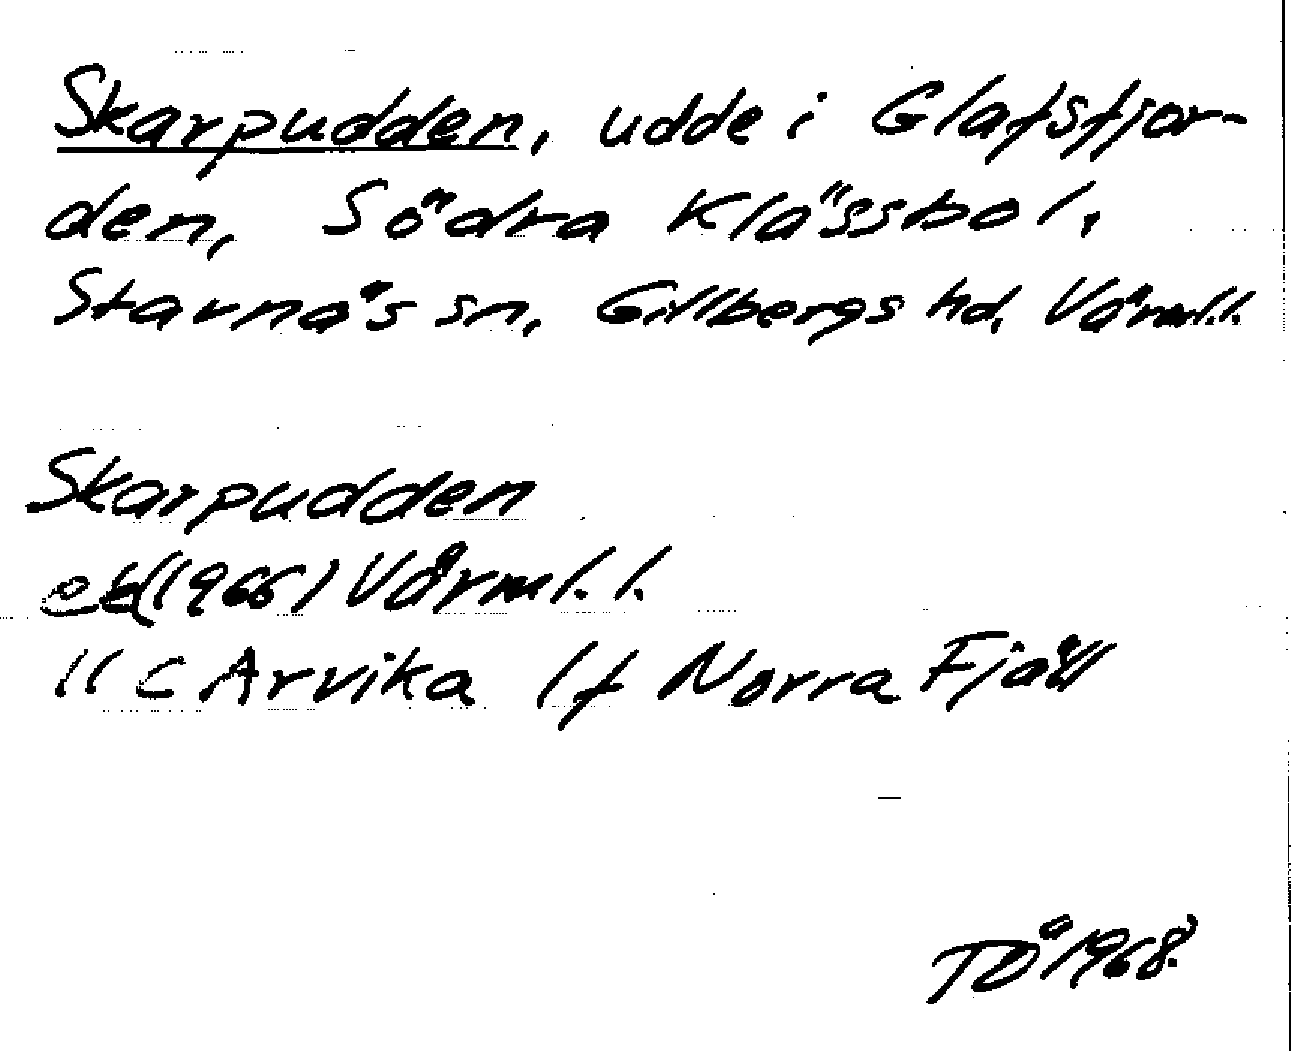 Skarpudden, udde i Glafsfjor-
den, Södra Klässbol,
Stavnäs sn, Gillbergs hd, Värml.l.
Skarpudden
ek(1966) Värml.l.
11 C Arvika 1f Norra Fjäll
TÖ 1968.